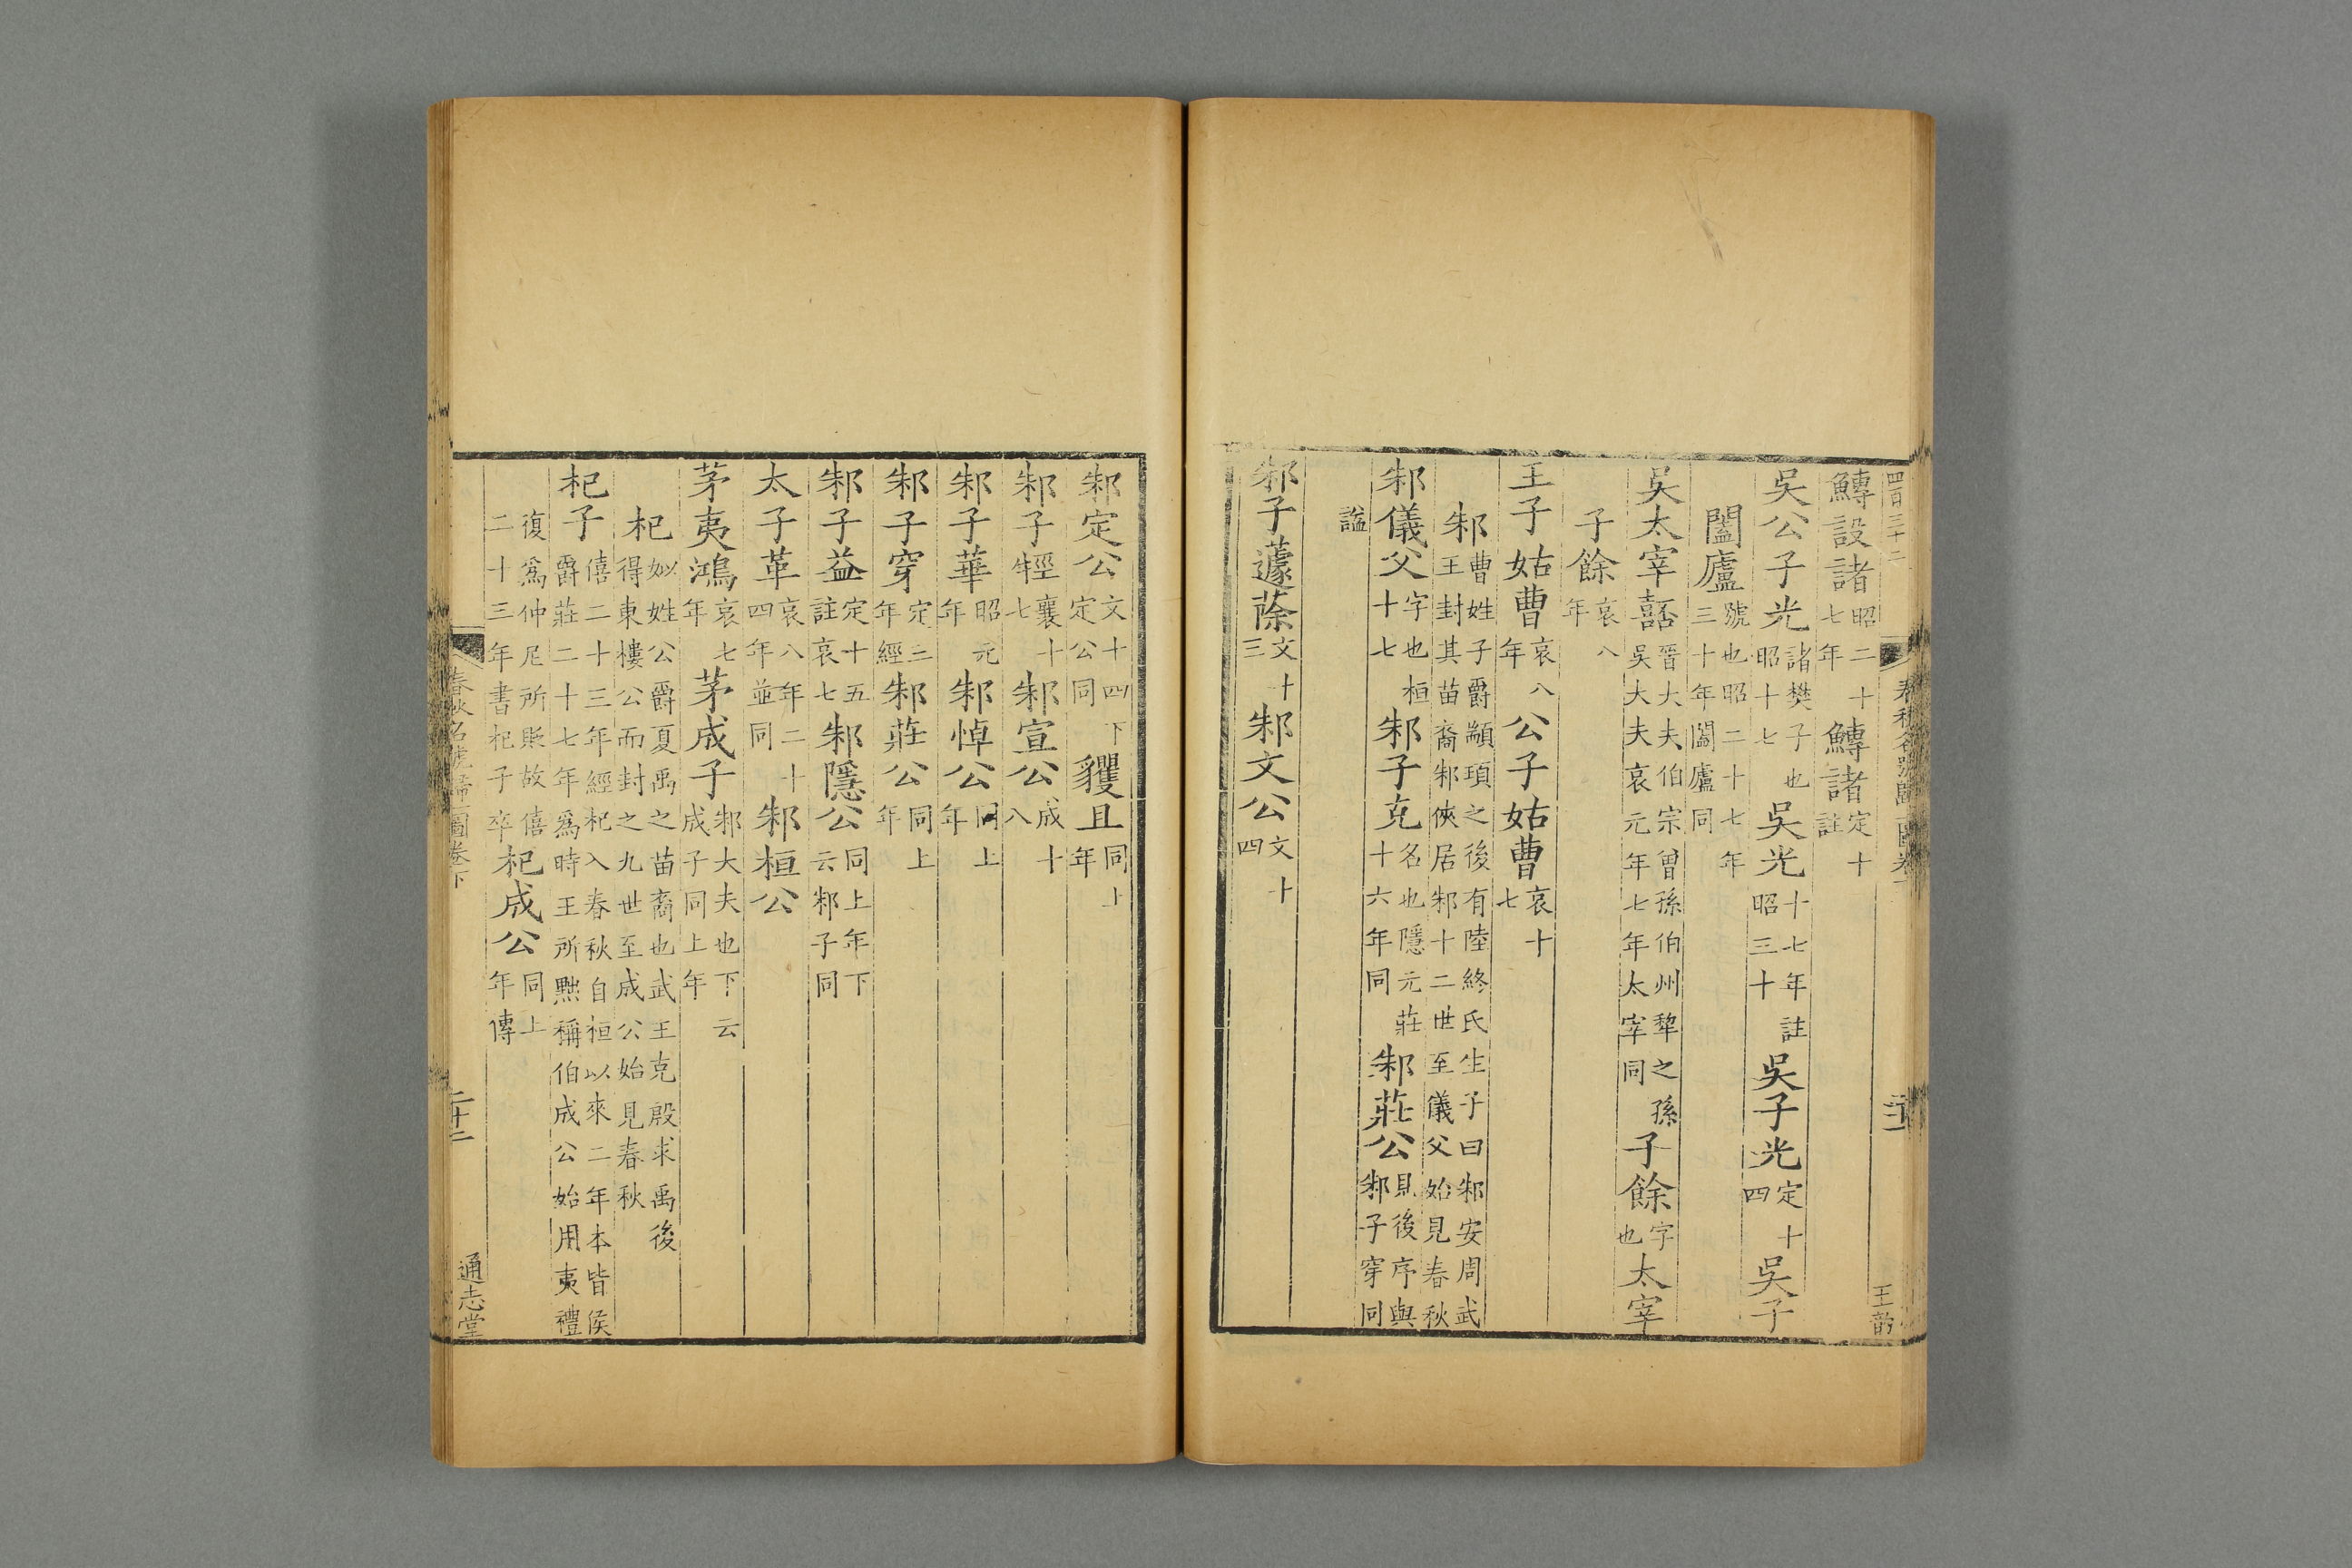 四百三十二
春秋名號歸一圖卷下
王
鱄設諸昭二十七年鱄諸定十註
吳公子光諸樊子也昭十七吳光十七年註昭三十吳子光定十四吳子
闔廬號也昭二十七年三十年闔廬同
吳太宰嚭晉大夫伯宗曾孫伯州犂之孫吳大夫哀元年七年太宰同子餘字也太宰
子餘哀八年
王子姑曹哀八年公子姑曹哀十七
邾曹姓子爵顓頊之後有陸終氏生子曰邾安周武王封其苗裔邾俠居邾十二世至儀父始見春秋
邾儀父字也桓十七邾子克名也隱元莊十六年同邾莊公見後序與邾子穿同
謚
邾子蘧蒢文十三邾文公文十四
邾定公文十四下定公同貜且同上年
邾子牼襄十七邾宣公成十八
邾子華昭元年邾悼公同上年
邾子穿定三年經邾莊公同上年
邾子益定十五註哀七邾隱公同上年下云邾子同
太子革哀八年二十四年並同邾桓公
茅夷鴻哀七年茅成子邾大夫也下云成子同上年
杞姒姓公爵夏禹之苗裔也武王克殷求禹後得東樓公而封之九世至成公始見春秋
杞子僖二十三年經杞入春秋自桓以來二年本皆侯爵莊二十七年爲時王所黜稱伯成公始用夷禮
復爲仲尼所貶故僖二十三年書杞子卒杞成公同上年傳
春秋名號歸一圖卷下
二十二
通志堂